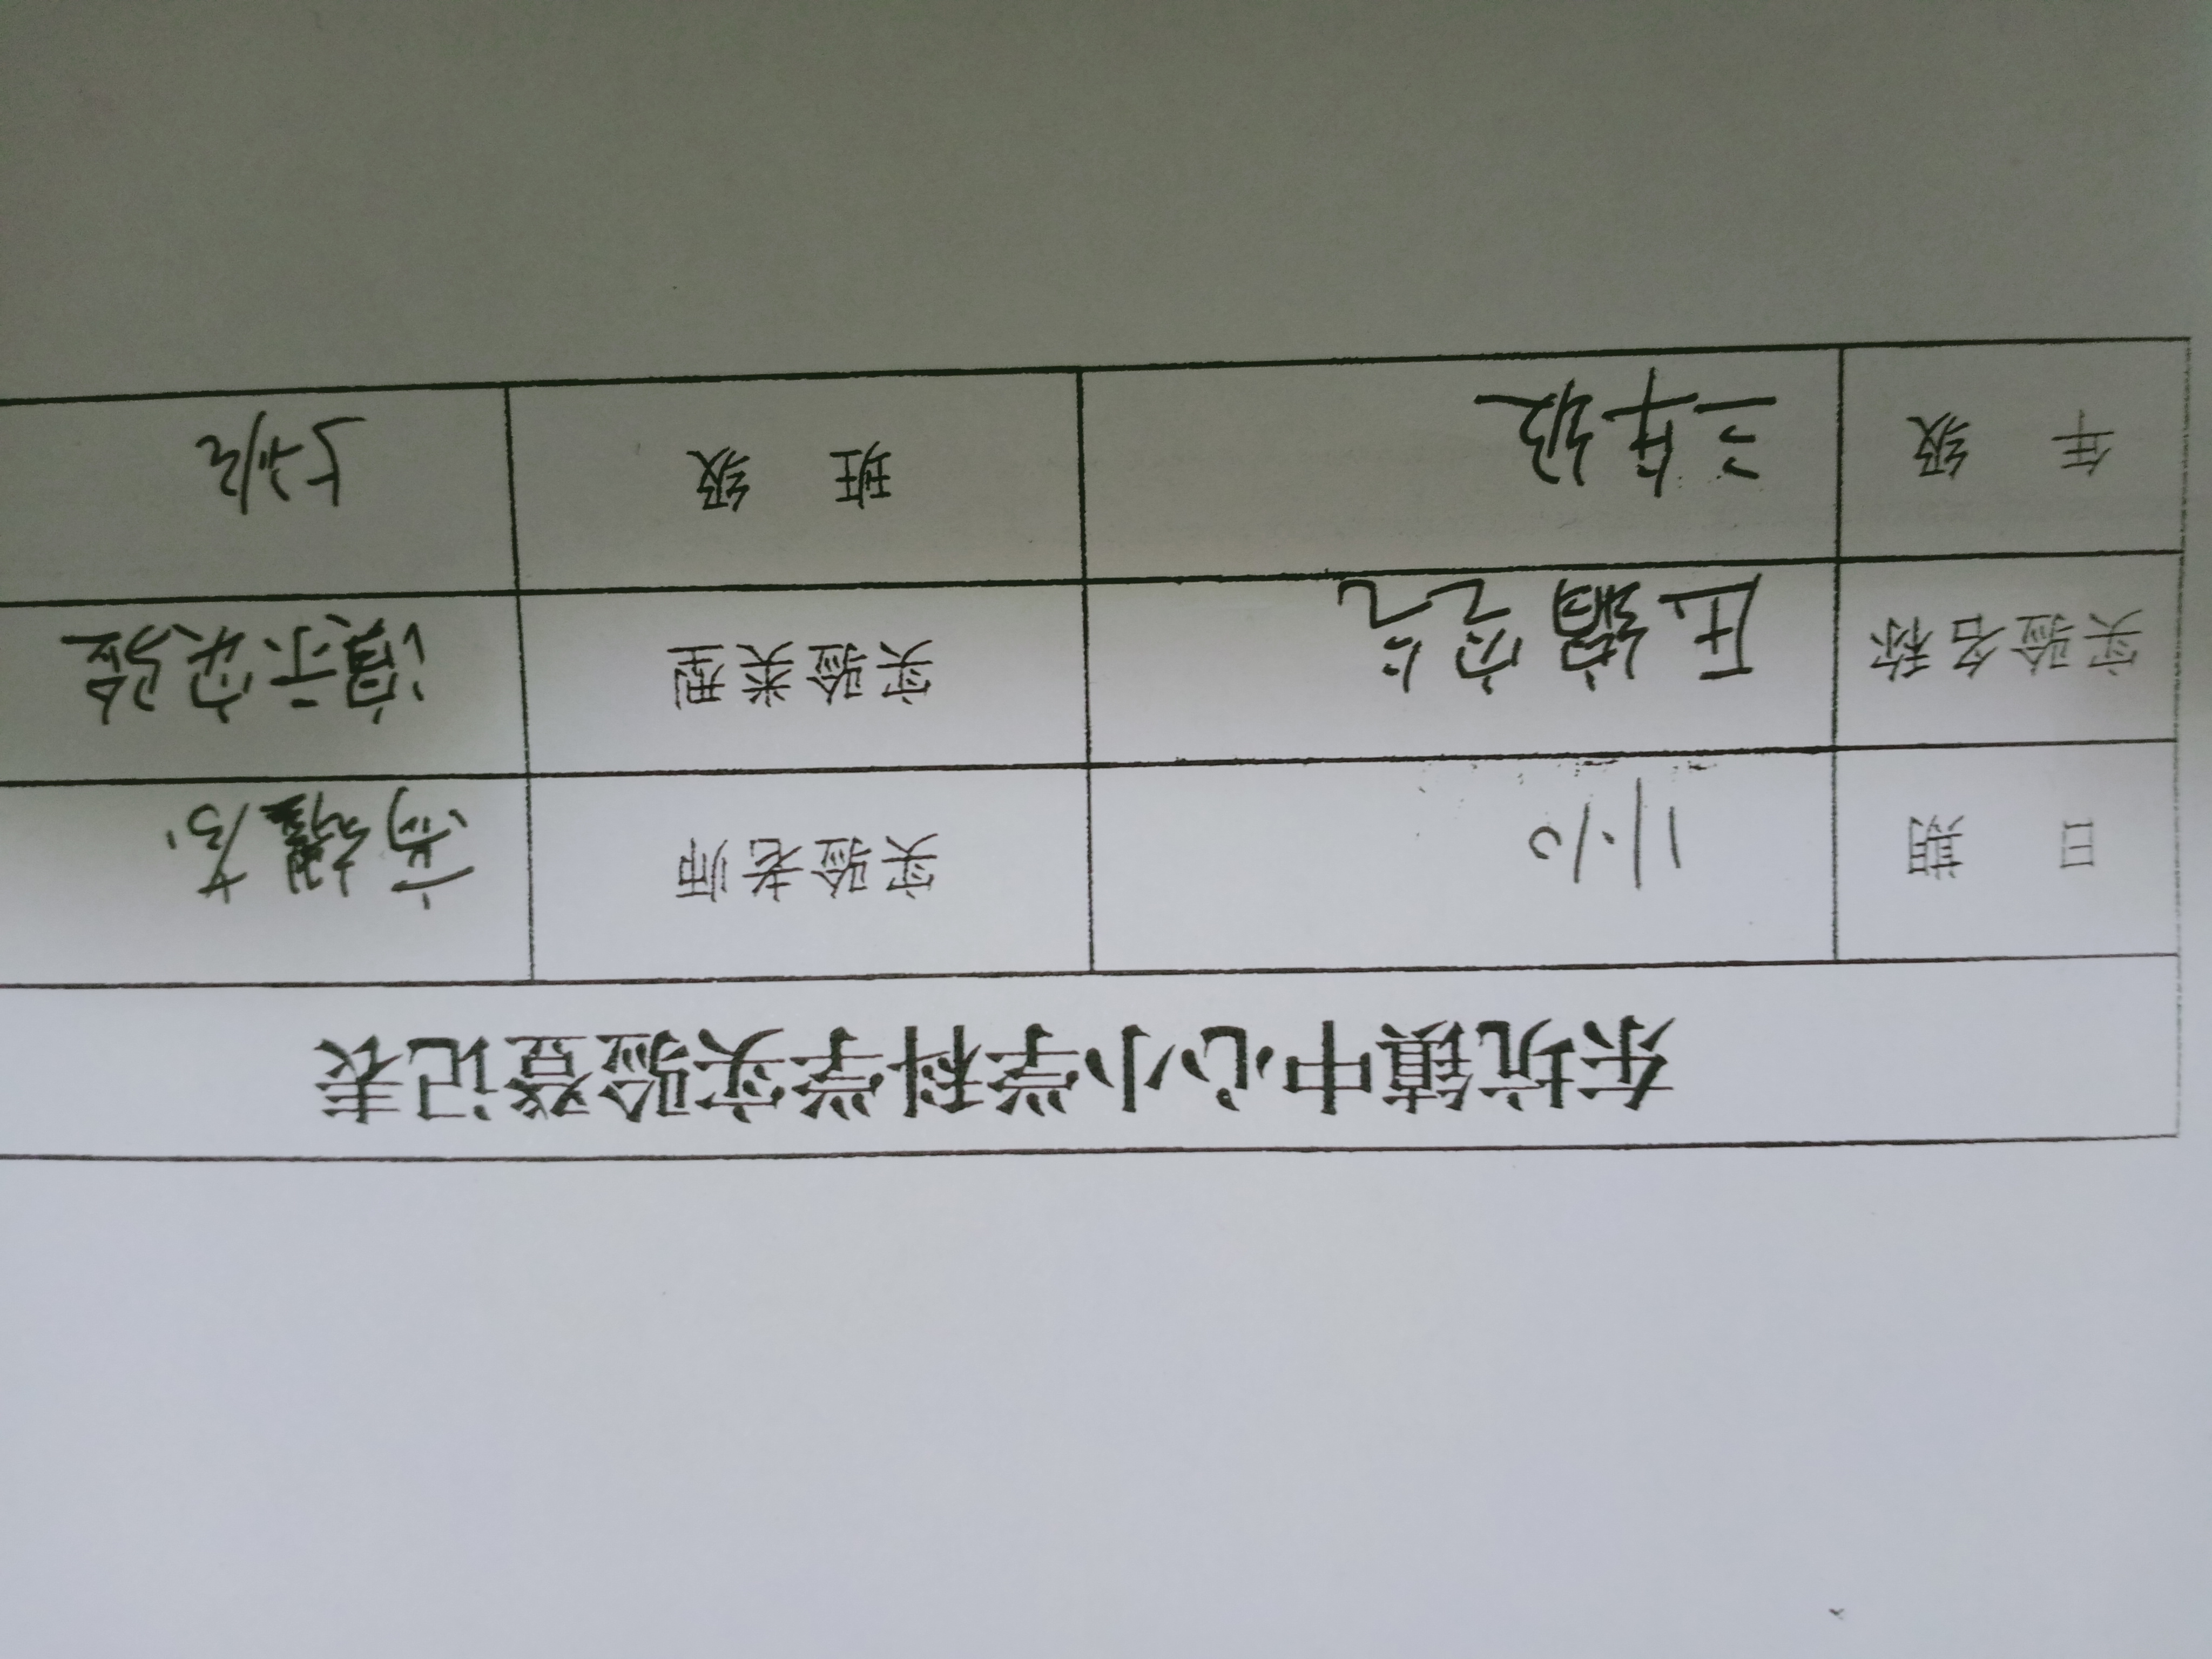 东坑镇中心小学科学实验登记表
日 期 11.10 实验老师
实验名称 压缩空气 实验类型 演示实验
年 级 三年级 班 级 5班